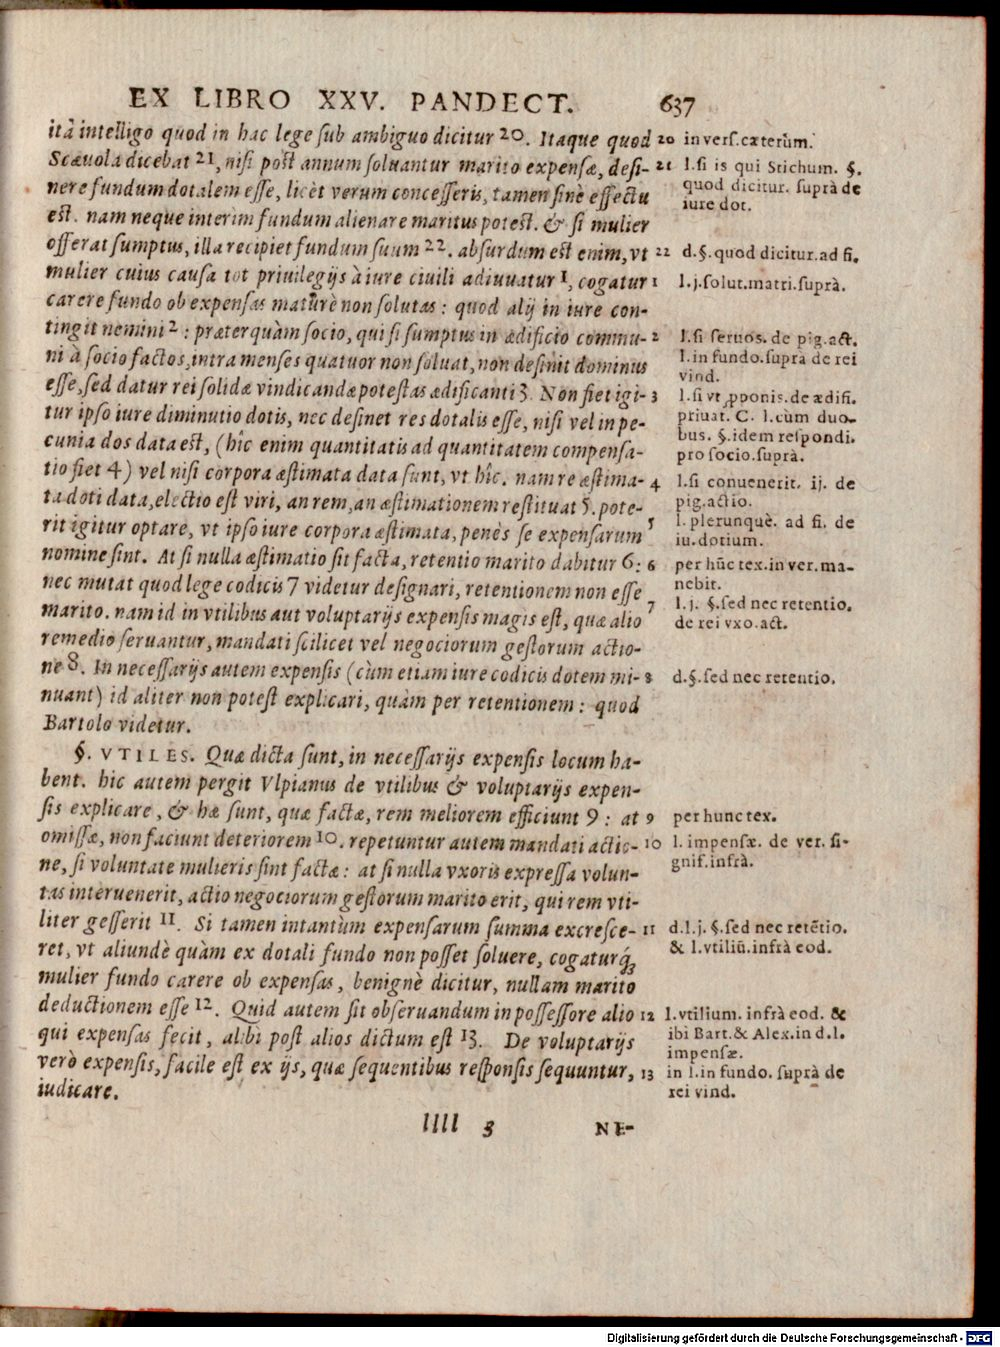 EX LIBRO XXV. PANDECT. 637
ità intelligo quod in hac lege sub ambiguo dicitur 20. Itaque quod
Scæuola dicebat 21, nisi post annum soluantur marito expensæ, desi-
nere fundum dotalem esse, licèt verum concesseris, tamen sinè effectu
est. nam neque interim fundum alienare maritus potest. & si mulier
offerat sumptus, illa recipiet fundum suum 22. absurdum est enim, vt
mulier cuius causa tot priuilegijs à iure ciuili adiuuatur 1, cogatur
carere fundo ob expensas maturè non solutas: quod alij in iure con-
tingit nemini 2: præterquàm socio, qui si sumptus in ædificio commu-
ni à socio factos, intra menses quatuor non soluat, non desinit dominus
esse, sed datur rei solidæ vindicandæ potestas ædificanti 3. Non fiet igi-
tur ipso iure diminutio dotis, nec desinet res dotalis esse, nisi vel in pe-
cunia dos data est, (hic enim quantitatis ad quantitatem compensa-
tio fiet 4) vel nisi corpora æstimata data sunt, vt hîc. nam re æstima-
ta doti data, electio est viri, an rem, an æstimationem restituat 5. pote-
rit igitur optare, vt ipso iure corpora æstimata, penès se expensarum
nomine sint. At si nulla æstimatio sit facta, retentio marito dabitur 6:
nec mutat quod lege codicis 7 videtur designari, retentionem non esse
marito. nam id in vtilibus aut voluptarijs expensis magis est, quæ alio
remedio seruantur, mandati scilicet vel negociorum gestorum actio-
ne 8. In necessarijs autem expensis (cùm etiam iure codicis dotem mi-
nuant) id aliter non potest explicari, quàm per retentionem: quod
Bartolo videtur.
§. VTILES. Quæ dicta sunt, in necessarijs expensis locum ha-
bent. hic autem pergit Vlpianus de vtilibus & voluptarijs expen-
sis explicare, & hæ sunt, quæ factæ, rem meliorem efficiunt 9: at
omissæ, non faciunt deteriorem 10. repetuntur autem mandati actio-
ne, si voluntate mulieris sint factæ: at si nulla vxoris expressa volun-
tas interuenerit, actio negociorum gestorum marito erit, qui rem vti-
liter gesserit 11. Si tamen intantùm expensarum summa excresce-
ret, vt aliundè quàm ex dotali fundo non posset soluere, cogaturq́;
mulier fundo carere ob expensas, benignè dicitur, nullam marito
deductionem esse 12. Quid autem sit obseruandum in possessore alio
qui expensas fecit, alibi post alios dictum est 13. De voluptarijs
verò expensis, facile est ex ijs, quæ sequentibus responsis sequuntur,
iudicare.
llll 3 NE-
20 in vers. cæterùm.
21 l. si is qui Stichum. §.
quod dicitur. suprà de
iure dot.
22 d. §. quod dicitur. ad fi.
1 l. j. solut. matri. suprà.
2 l. si seruos. de pig. act.
l. in fundo. suprà de rei
vind.
3 l. si vt ꝓponis. de ædifi.
priuat. C. l. cùm duo-
bus. §. idem respondi.
pro socio. suprà.
4 l. si conuenerit. ij. de
pig. actio.
5 l. plerunquè. ad fi. de
iu. dotium.
6 per hũc tex. in ver. ma-
nebit.
7 l. j. §. sed nec retentio.
de rei vxo. act.
8 d. §. sed nec retentio.
9 per hunc tex.
10 l. impensæ. de ver. si-
gnif. infrà.
11 d. l. j. §. sed nec retẽtio.
& l. vtiliũ. infrà eod.
12 l. vtilium. infrà eod. &
ibi Bart. & Alex. in d. l.
impensæ.
13 in l. in fundo. suprà de
rei vind.
Digitalisierung gefördert durch die Deutsche Forschungsgemeinschaft - DFG